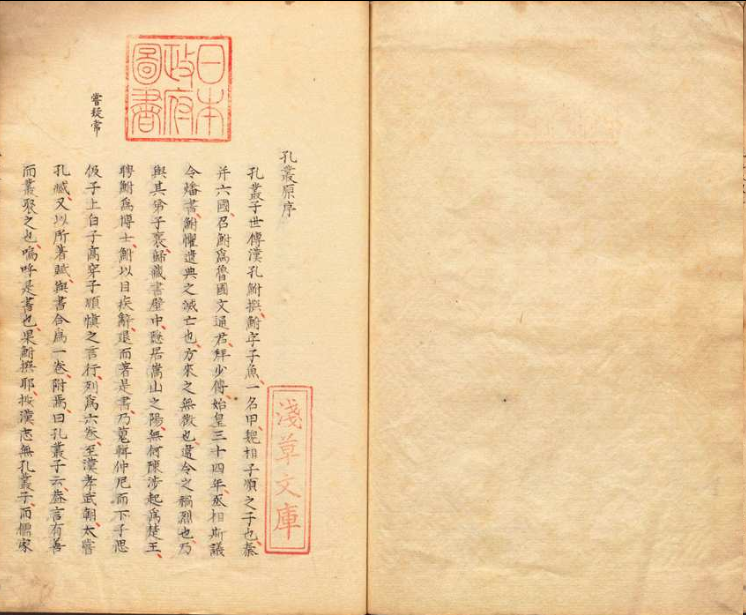 日本
政府
圖書
嘗疑常
孔叢原序
孔叢子世傳漢孔鮒撰鮒字子魚一名甲魏相子順之子也秦
并六國召鮒爲魯國文通君拜少傅始皇三十四年丞相斯議
令燔書鮒懼遺典之滅亡也方來之無徵也違令之禍烈也乃
與其弟子襄歸藏書壁中隱居嵩山之陽無何陳涉起爲楚王
聘鮒爲博士鮒以目疾辭退而著是書乃蒐輯仲尼而下子思
伋子上白子高穿子順愼之言行列爲六卷至漢孝武朝太嘗
孔臧又以所著賦與書合爲一卷附焉曰孔叢子云盖言有善
而叢聚之也嗚呼是書也果鮒撰耶按漢志無孔叢子而儒家
淺草文庫